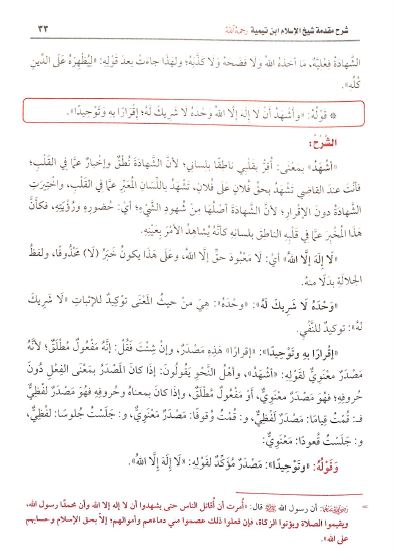 شرح مقدمة شيخ الإسلام ابن تيمية رحمه الله ٣٣
الشَّهَادَةِ فِعْلِيَّةً، مَا أَخَذَهُ اللهُ وَلَا فَضَحَهُ وَلَا كَذَّبَهُ؛ وَلِهَذَا جَاءَتْ بعدَ قَوْلِهِ: «لِيُظْهِرَهُ عَلَى الدِّينِ
كُلِّهِ».
* قَوْلُهُ: «وَأَشْهَدُ أَنْ لَا إِلَهَ إِلَّا اللهُ وَحْدَهُ لَا شَرِيكَ لَهُ؛ إِقْرَارًا بِهِ وَتَوْحِيدًا».
الشَّرْحُ:
«أَشْهَدُ» بمعنَى: أُقِرُّ بقَلبِي ناطقًا بلسانِي؛ لأنَّ الشَّهادَةَ نُطْقٌ وإخبارٌ عمَّا في القَلْبِ؛
فأنْتَ عندَ القَاضِي تَشْهَدُ بحقِّ فُلَانٍ عَلَى فُلَانٍ، تَشْهَدُ باللِّسَانِ المُعَبِّرِ عمَّا في القَلْبِ، واخْتِيرَتِ
الشَّهادَةُ دونَ الإقْرارِ؛ لأنَّ الشَّهادَةَ أصْلُهَا مِنْ شُهودِ الشَّيْءِ؛ أيْ: حُضورِهِ ورُؤْيَتِهِ، فكأنَّ
هذا المُخْبِرَ عمَّا في قَلْبِهِ الناطقَ بلسانِهِ كأنَّهُ يُشاهِدُ الأمْرَ بعَيْنِهِ.
«لَا إِلَهَ إِلَّا اللهُ» أيْ: لا مَعْبُودَ حقٌّ إلَّا اللهُ، وعَلَى هَذا يكونُ خَبَرُ (لَا) مَحْذُوفًا، ولفظُ
الجلالَةِ بدلًا منهُ.
«وَحْدَهُ لَا شَرِيكَ لَهُ»: «وحدَهُ»: هِيَ مِنْ حيثُ المَعْنَى تَوْكِيدٌ للإثباتِ «لَا شَرِيكَ
لَهُ»: تَوكيدٌ للنَّفْيِ.
«إِقْرارًا بِهِ وتَوْحِيدًا»: «إقرارًا» هَذِهِ مَصْدَرٌ، وإنْ شِئْتَ فقُلْ: إنَّهُ مَفْعُولٌ مُطْلَقٌ؛ لأنَّهُ
مَصْدَرٌ مَعْنَوِيٌّ لقَوْلِهِ: «أَشْهَدُ»، وأهْلُ النَّحْوِ يَقُولُونَ: إذَا كانَ المَصْدَرُ بمَعْنَى الفِعْلِ دُونَ
حُرُوفِهِ؛ فهُوَ مَصْدَرٌ مَعْنَوِيٌّ، أوْ مَفْعُولٌ مُطْلَقٌ، وإذَا كانَ بمعناهُ وحُروفِهِ فهُوَ مَصْدَرٌ لفْظِيٌّ
فـ: قُمْتُ قِيامًا: مَصْدَرٌ لَفْظِيٌّ، و: قُمْتُ وُقوفًا: مَصْدَرٌ مَعْنَوِيٌّ، و: جَلَسْتُ جُلوسًا: لفْظِيٌّ،
و: جَلَسْتُ قُعودًا: مَعْنَوِيٌّ:
وَقَوْلُهُ: «وَتَوْحِيدًا»: مَصْدَرٌ مُؤكِّدٌ لقَوْلِهِ: «لَا إِلَهَ إِلَّا اللهُ».
= أن رسول الله ﷺ قال: «أُمرت أن أُقاتل الناس حتى يشهدوا أن لا إله إلا الله وأن محمدًا رسول الله،
ويقيموا الصلاة ويؤتوا الزكاة، فإن فعلوا ذلك عصموا مني دماءهم وأموالهم؛ إلا بحق الإسلام وحسابهم
على الله».